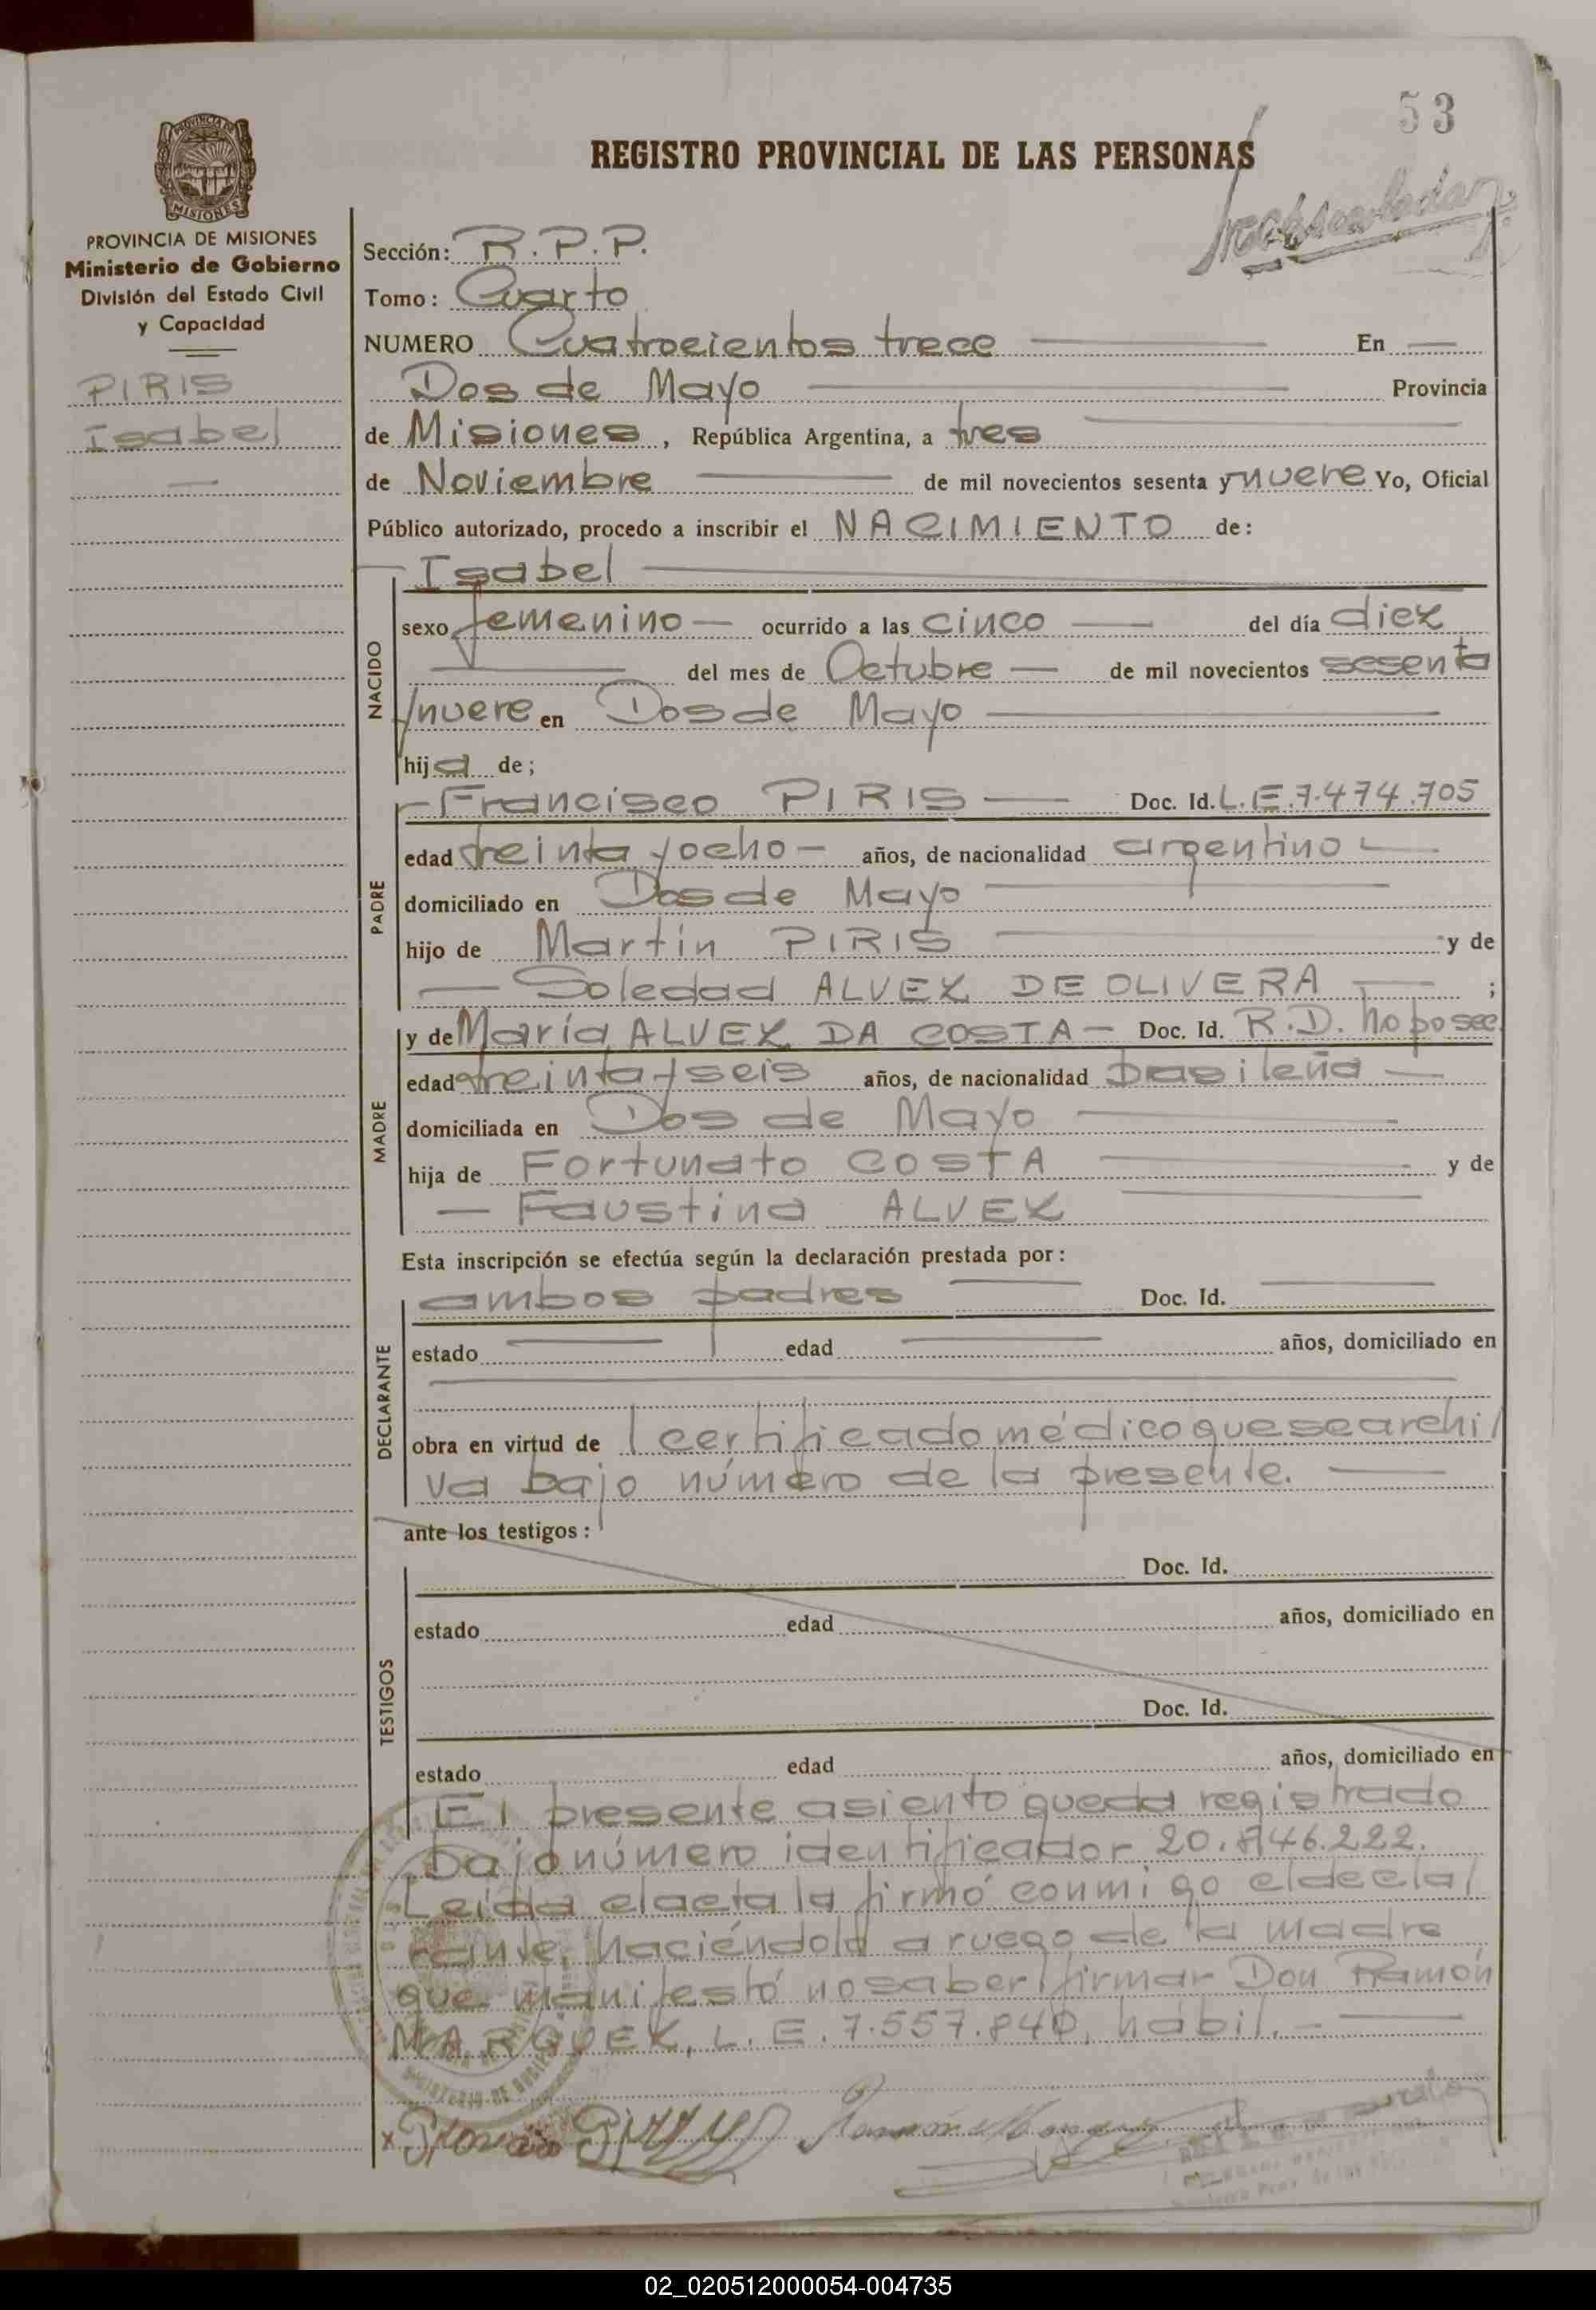 53
REGISTRO PROVINCIAL DE LAS PERSONAS
PROVINCIA DE MISIONES
Ministerio de Gobierno
División del Estado Civil
y Capacidad
PIRIS
Isabel
Sección: R.P.P.
Tomo: Cuarto
NUMERO Cuatrocientos trece En
Dos de Mayo Provincia
de Misiones, República Argentina, a tres
de Noviembre de mil novecientos sesenta y nueve Yo, Oficial
Público autorizado, procedo a inscribir el NACIMIENTO de:
Isabel
NACIDO
sexo femenino ocurrido a las cinco del día diez
del mes de Octubre de mil novecientos sesenta
/nueve en Dos de Mayo
hija de;
PADRE
Francisco PIRIS Doc. Id. L.E.7.474.705
edad treinta y ocho años, de nacionalidad argentino
domiciliado en Dos de Mayo
hijo de Martín PIRIS y de
Soledad ALVEZ DE OLIVERA ;
MADRE
y de María ALVEZ DA COSTA Doc. Id. R.D. no posee
edad treinta y seis años, de nacionalidad brasileña
domiciliada en Dos de Mayo
hija de Fortunato COSTA y de
Faustina ALVEZ
Esta inscripción se efectúa según la declaración prestada por:
DECLARANTE
ambos padres Doc. Id.
estado edad años, domiciliado en
obra en virtud de certificado médico que se archi/
va bajo número de la presente.
ante los testigos:
TESTIGOS
Doc. Id.
estado edad años, domiciliado en
Doc. Id.
estado edad años, domiciliado en
El presente asiento queda registrado
bajo número identificador 20.846.222.
Leída el acta la firmó conmigo el decla/
rante, haciéndolo a ruego de la madre
que manifestó no saber firmar Don Ramón
MARQUEZ, L.E.7.557.840, hábil.
02_020512000054-004735